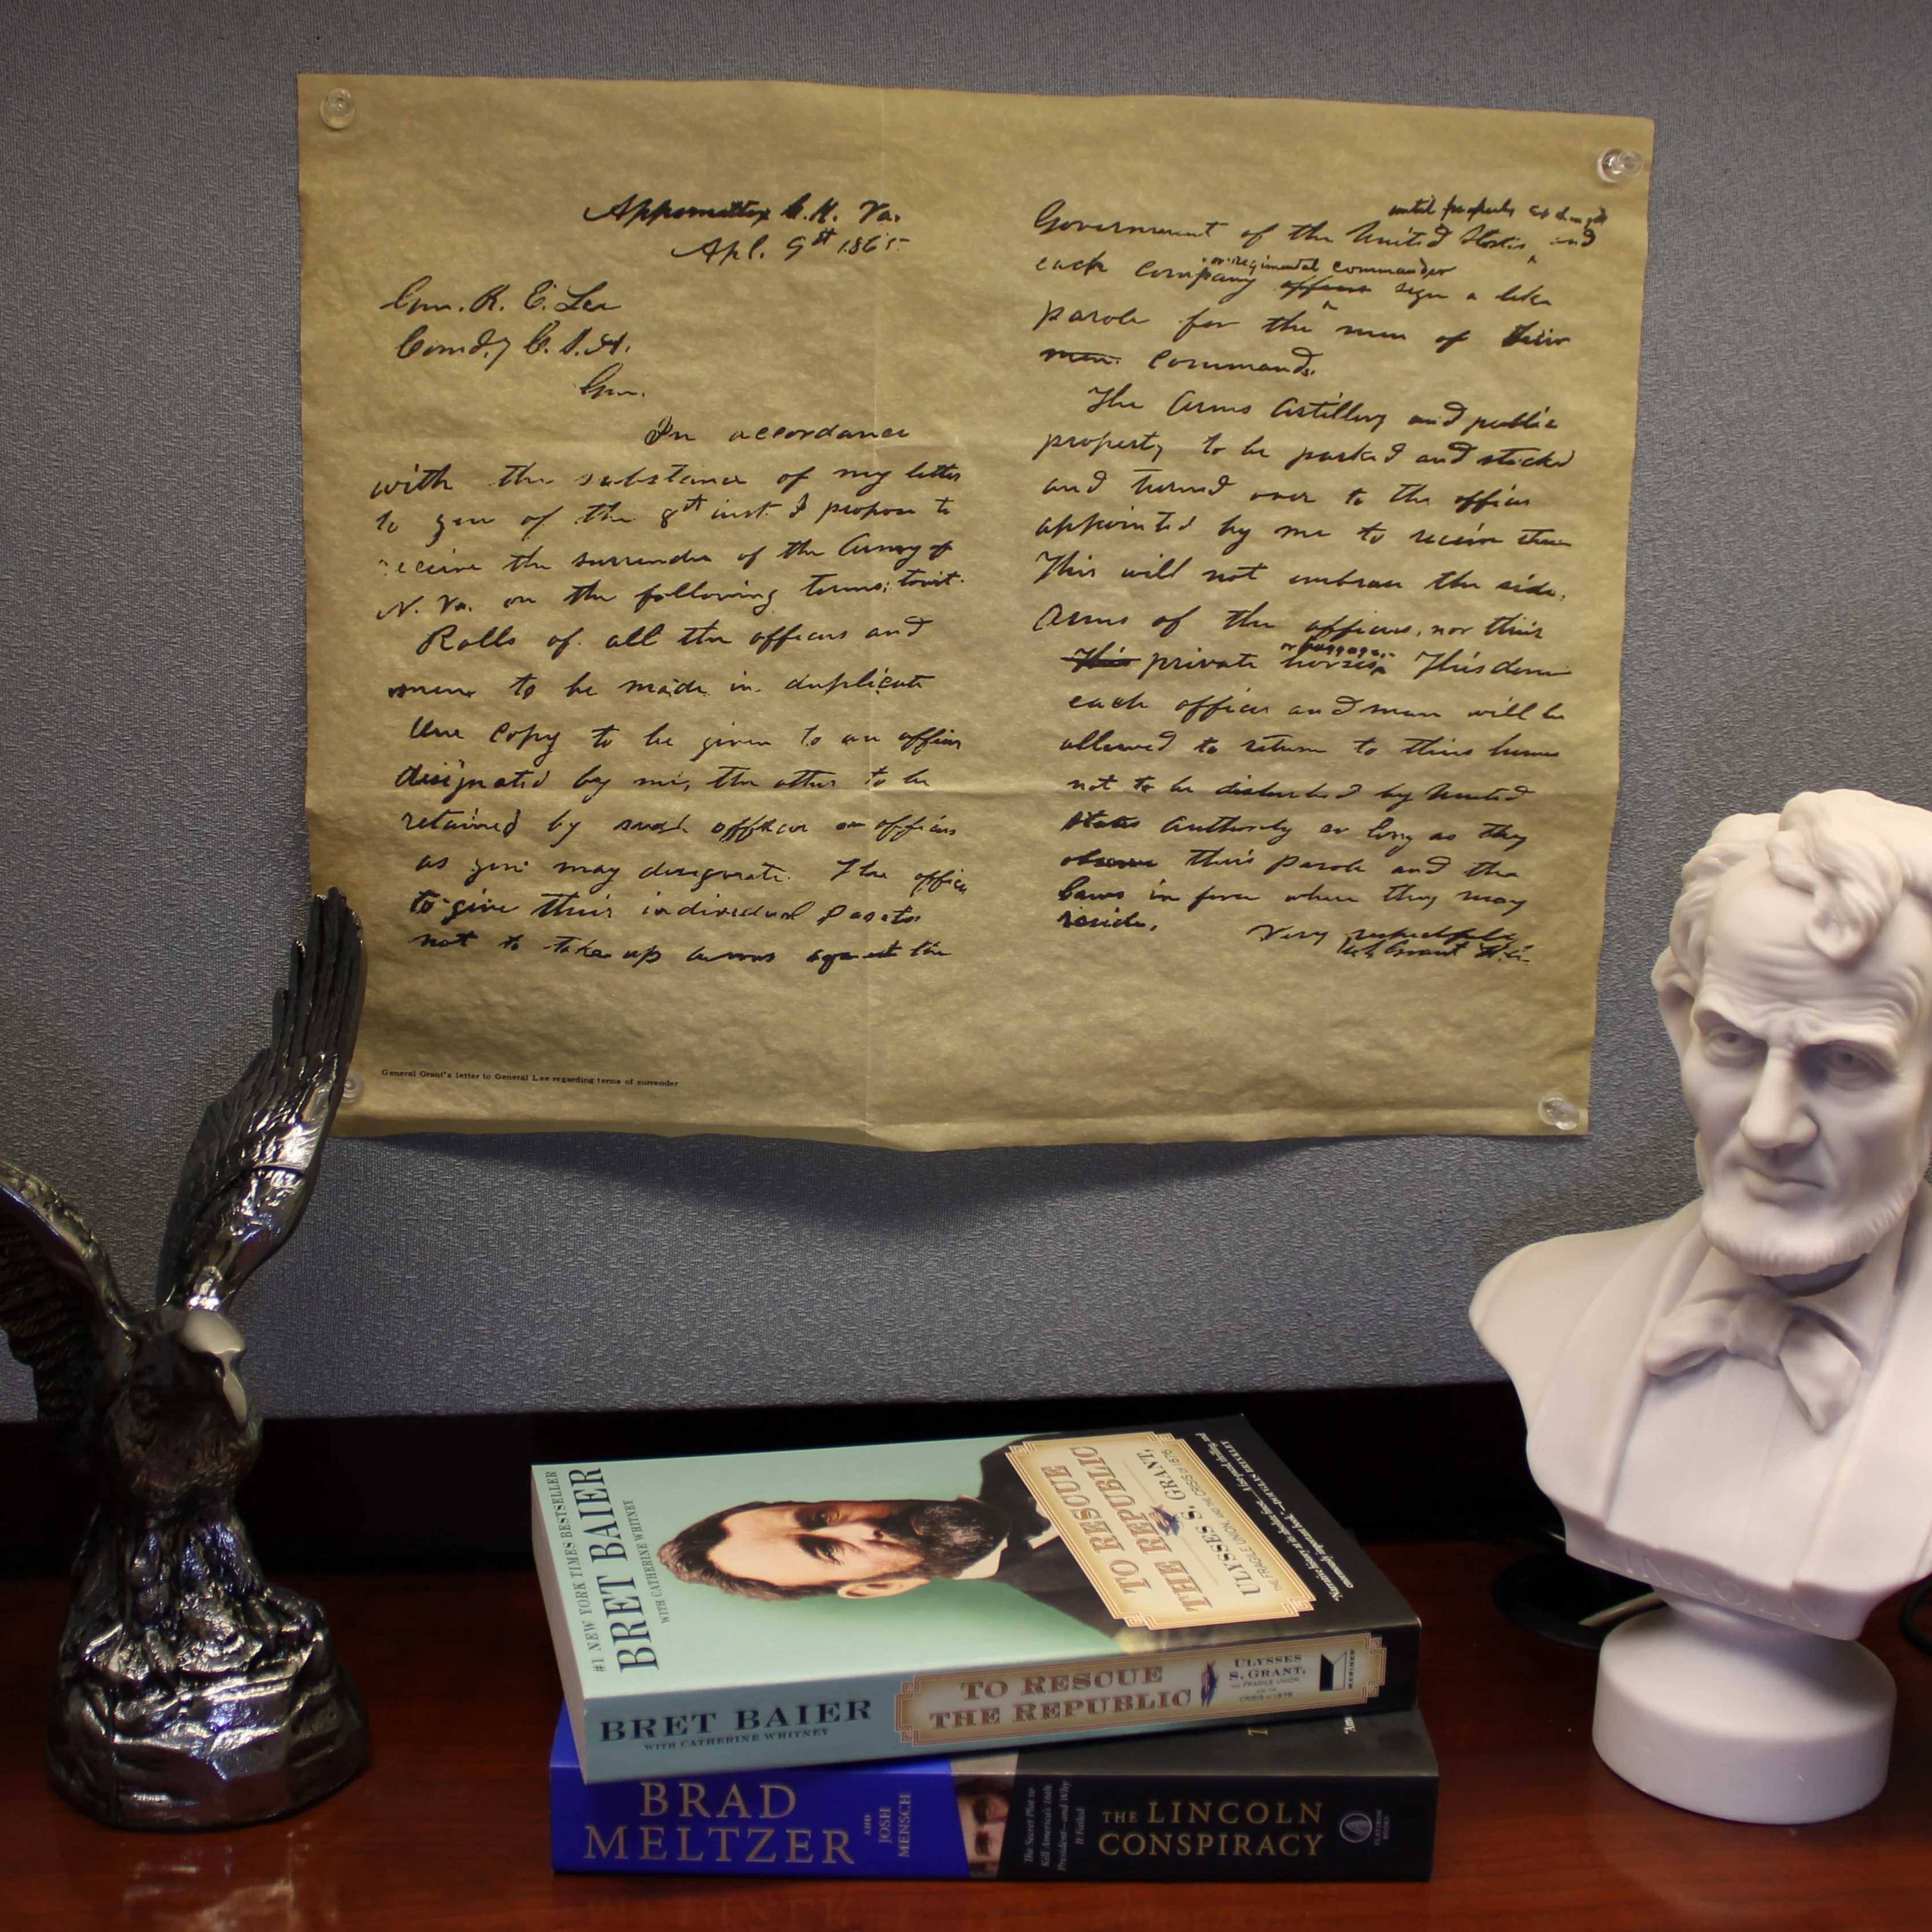 Appomattox C.H. Va.
Apl. 9th 1865
Gen. R. E. Lee
Comd.g C.S.A.
Gen.
In accordance
with the substance of my letter
to you of the 8th inst. I propose to
receive the surrender of the Army of
N. Va. on the following terms; towit.
Rolls of all the officers and
men to be made in duplicate
One copy to be given to an officer
designated by me, the other to be
retained by such officer or officers
as you may designate. The officers
to give their individual paroles
not to take up arms against the
until properly
Government of the United States and
or regimental commander
each company officer sign a like
parole for the men of their
men. Commands.
The Arms Artillery and public
property to be parked and stacked
and turned over to the officer
appointed by me to receive them
This will not embrace the side.
Arms of the officers, nor their
or baggage.
This private horses This done
each officer and man will be
allowed to return to their homes
not to be disturbed by United
States Authority so long as they
observe their parole and the
laws in force where they may
reside.
Very respectfully
U.S. Grant
General Grant's letter to General Lee regarding terms of surrender
#1 NEW YORK TIMES BESTSELLER
BRET BAIER
WITH CATHERINE WHITNEY
TO RESCUE
THE REPUBLIC
ULYSSES S. GRANT,
THE FRAGILE UNION, AND THE CRISIS OF 1876
BRET BAIER
WITH CATHERINE WHITNEY
TO RESCUE
THE REPUBLIC
ULYSSES
S. GRANT,
THE FRAGILE UNION,
AND THE
CRISIS OF 1876
MARINER
BRAD
MELTZER
AND
JOSH
MENSCH
The Secret Plot to
Kill America's 16th
President—and Why
It Failed
THE LINCOLN
CONSPIRACY
FLATIRON
BOOKS
LINCOLN